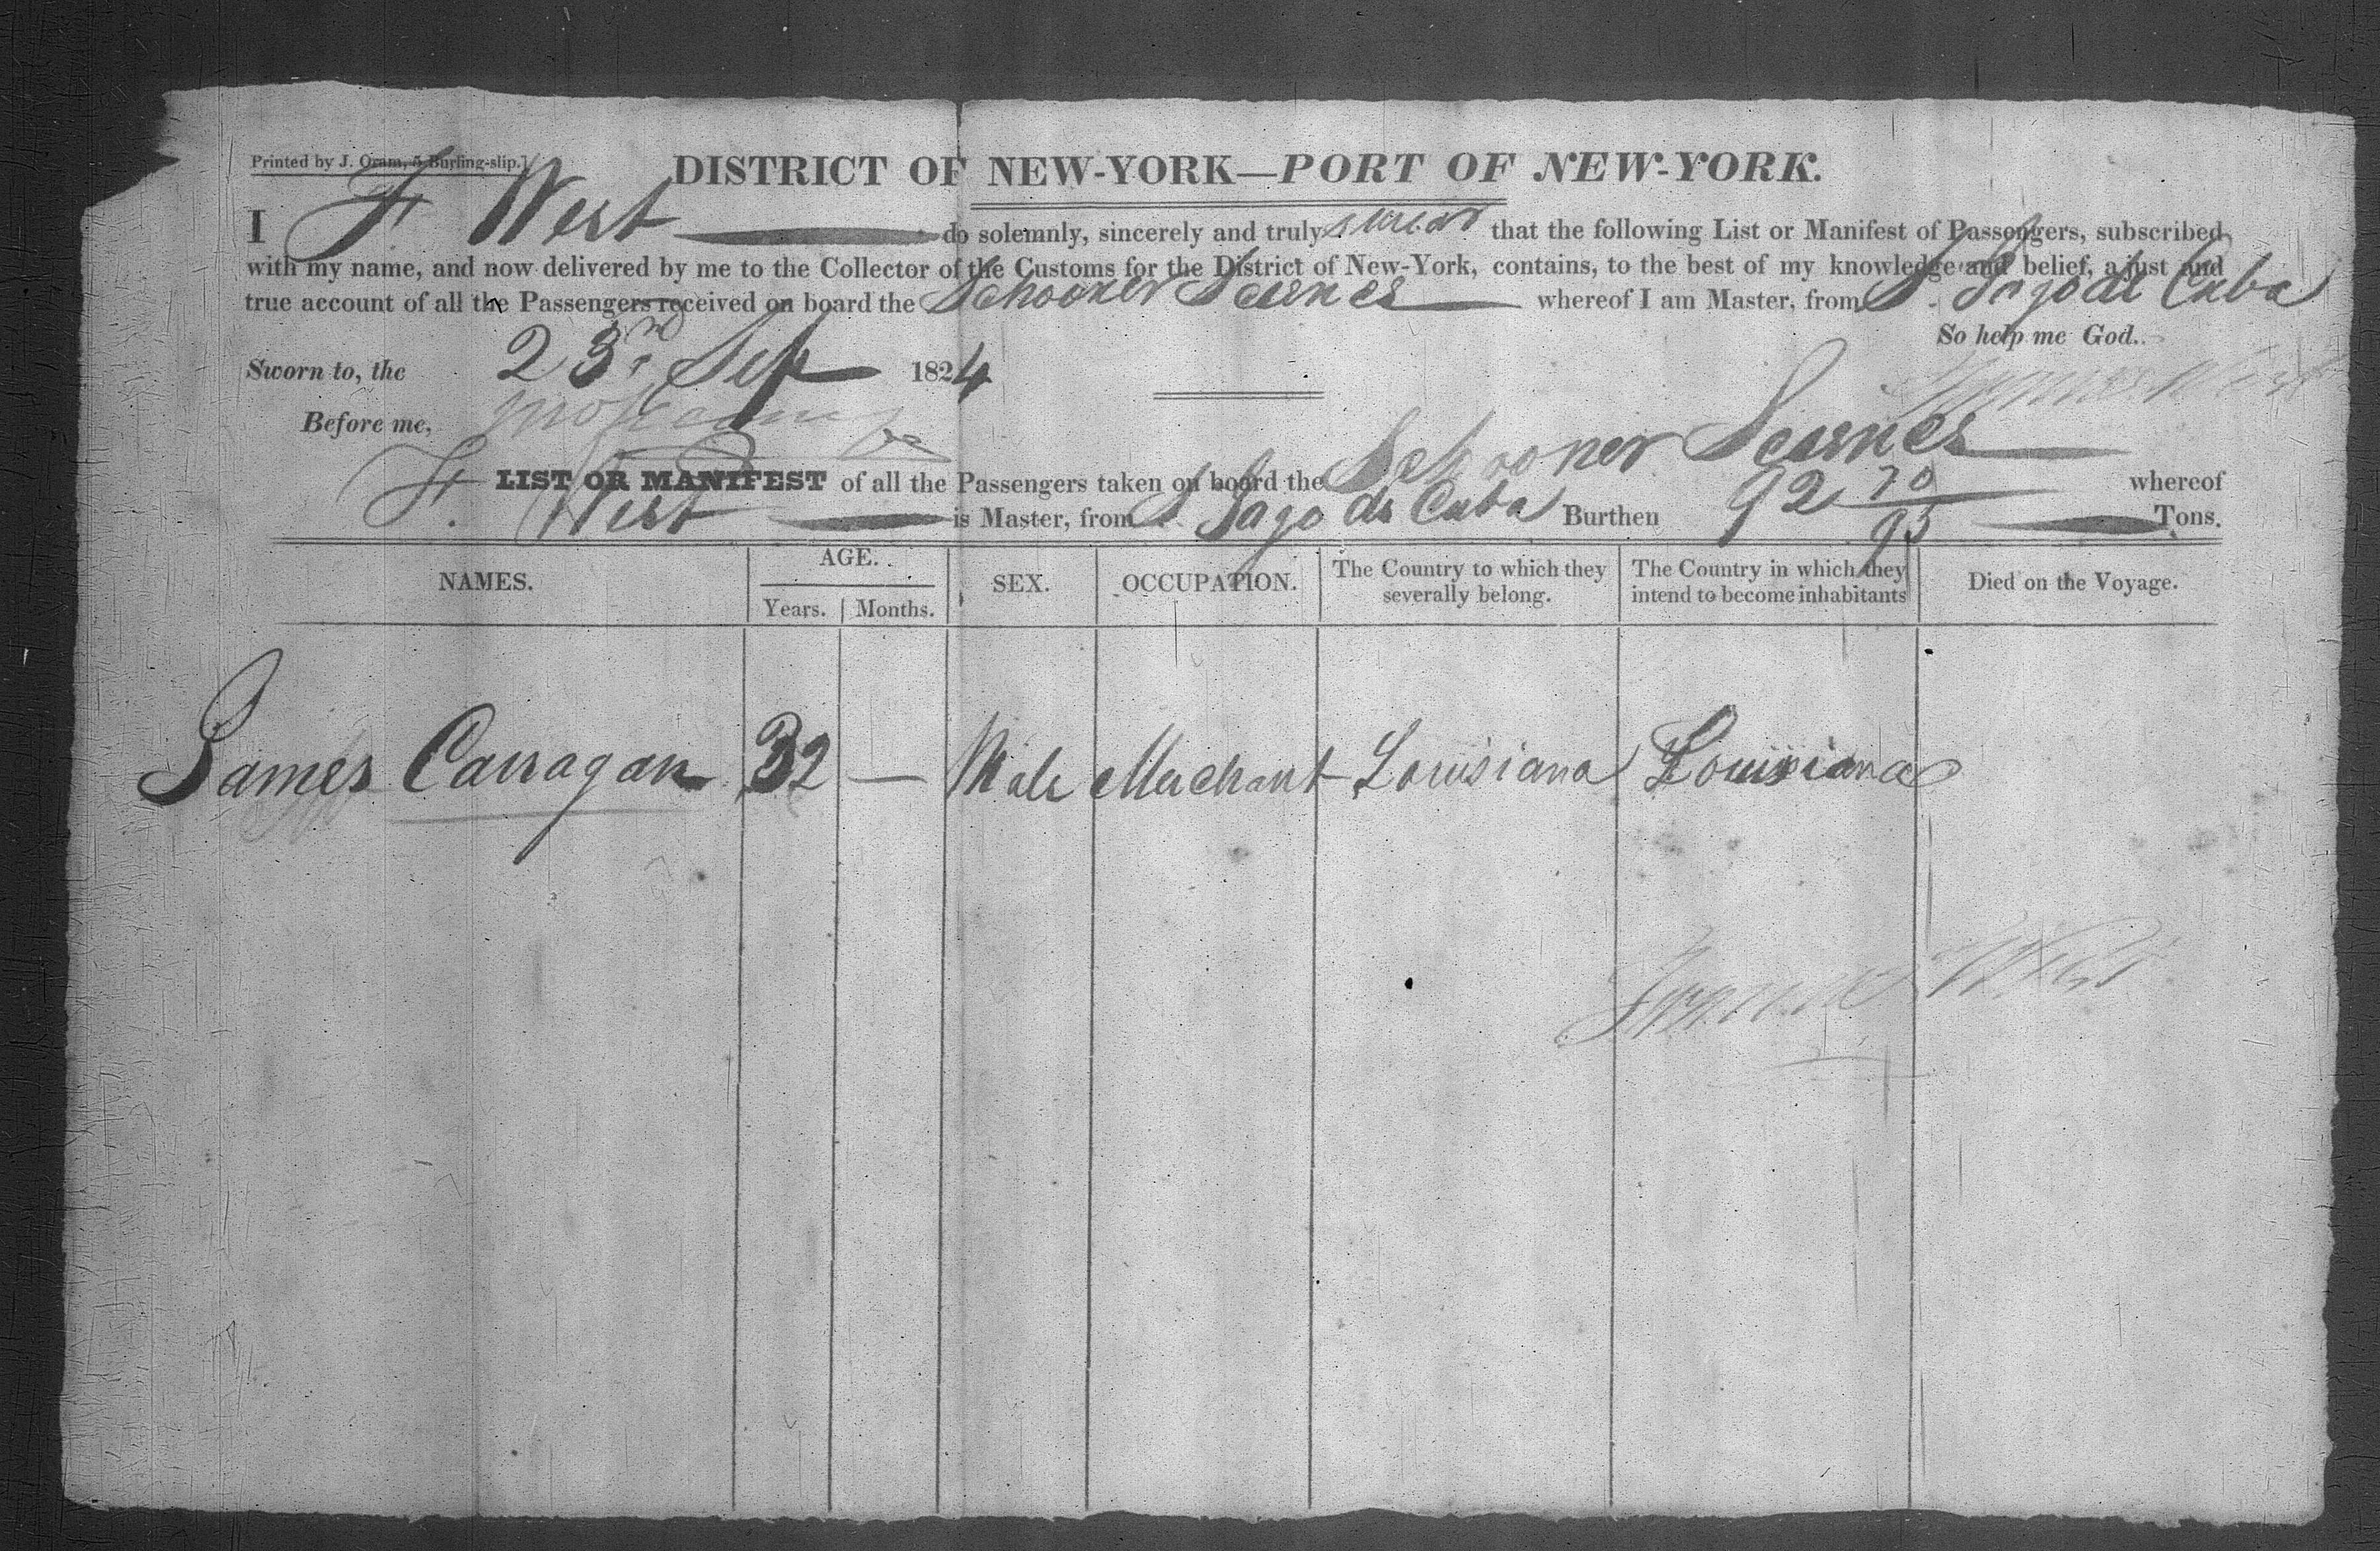 Printed by J. Oram, 5 Burling-slip.]
DISTRICT OF NEW-YORK—PORT OF NEW-YORK.
I F. West do solemnly, sincerely and truly swear that the following List or Manifest of Passengers, subscribed
with my name, and now delivered by me to the Collector of the Customs for the District of New-York, contains, to the best of my knowledge and belief, a just and
true account of all the Passengers received on board the Schooner whereof I am Master, from St. Jago de Cuba
So help me God.
Sworn to, the 23rd Sep 1824
Before me,
LIST OR MANIFEST of all the Passengers taken on board the Schooner whereof
F. West is Master, from St. Jago de Cuba Burthen 92 70/95 Tons.
NAMES. AGE. Years. Months. SEX. OCCUPATION. The Country to which they severally belong. The Country in which they intend to become inhabitants Died on the Voyage.
James Carragan 32 — Male Merchant Louisiana Louisiana
West